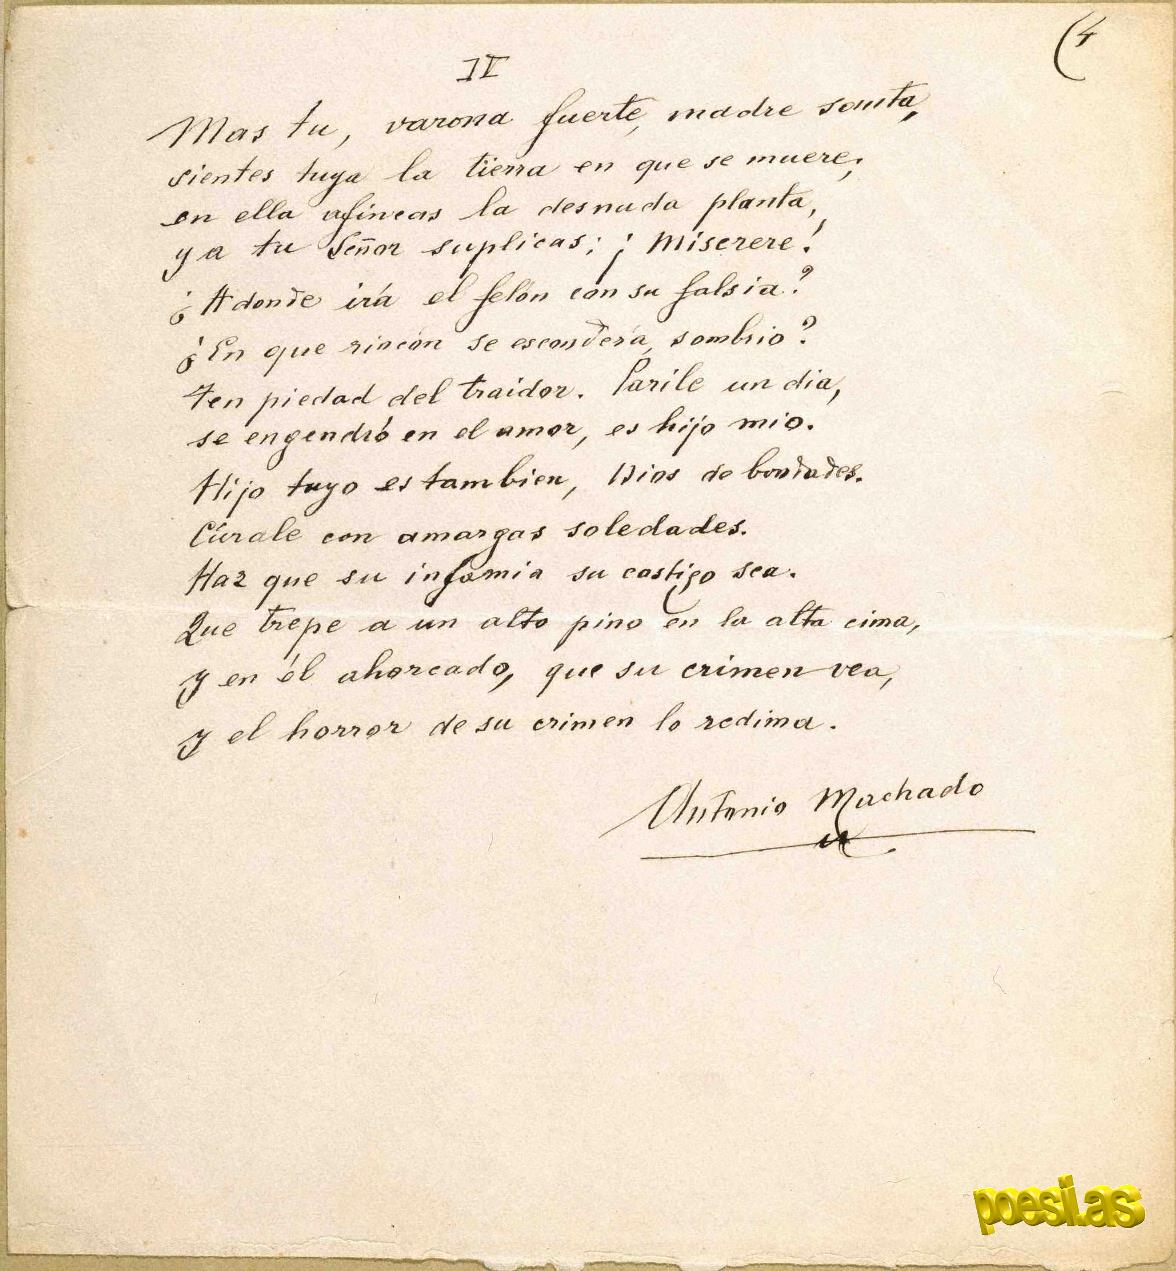 (4
IV
Mas tu, varona fuerte, madre santa,
sientes tuya la tierra en que se muere,
en ella afincas la desnuda planta,
y a tu Señor suplicas: ¡Miserere!
¿Adonde irá el felón con su falsia?
¿En que rincón se esconderá, sombrio?
Ten piedad del traidor. Parile un dia,
se engendró en el amor, es hijo mio.
Hijo tuyo es tambien, Dios de bondades.
Cúrale con amargas soledades.
Haz que su infamia su castigo sea.
Que trepe a un alto pino en la alta cima,
y en él ahorcado, que su crimen vea,
y el horror de su crimen lo redima.
Antonio Machado
poesi.as